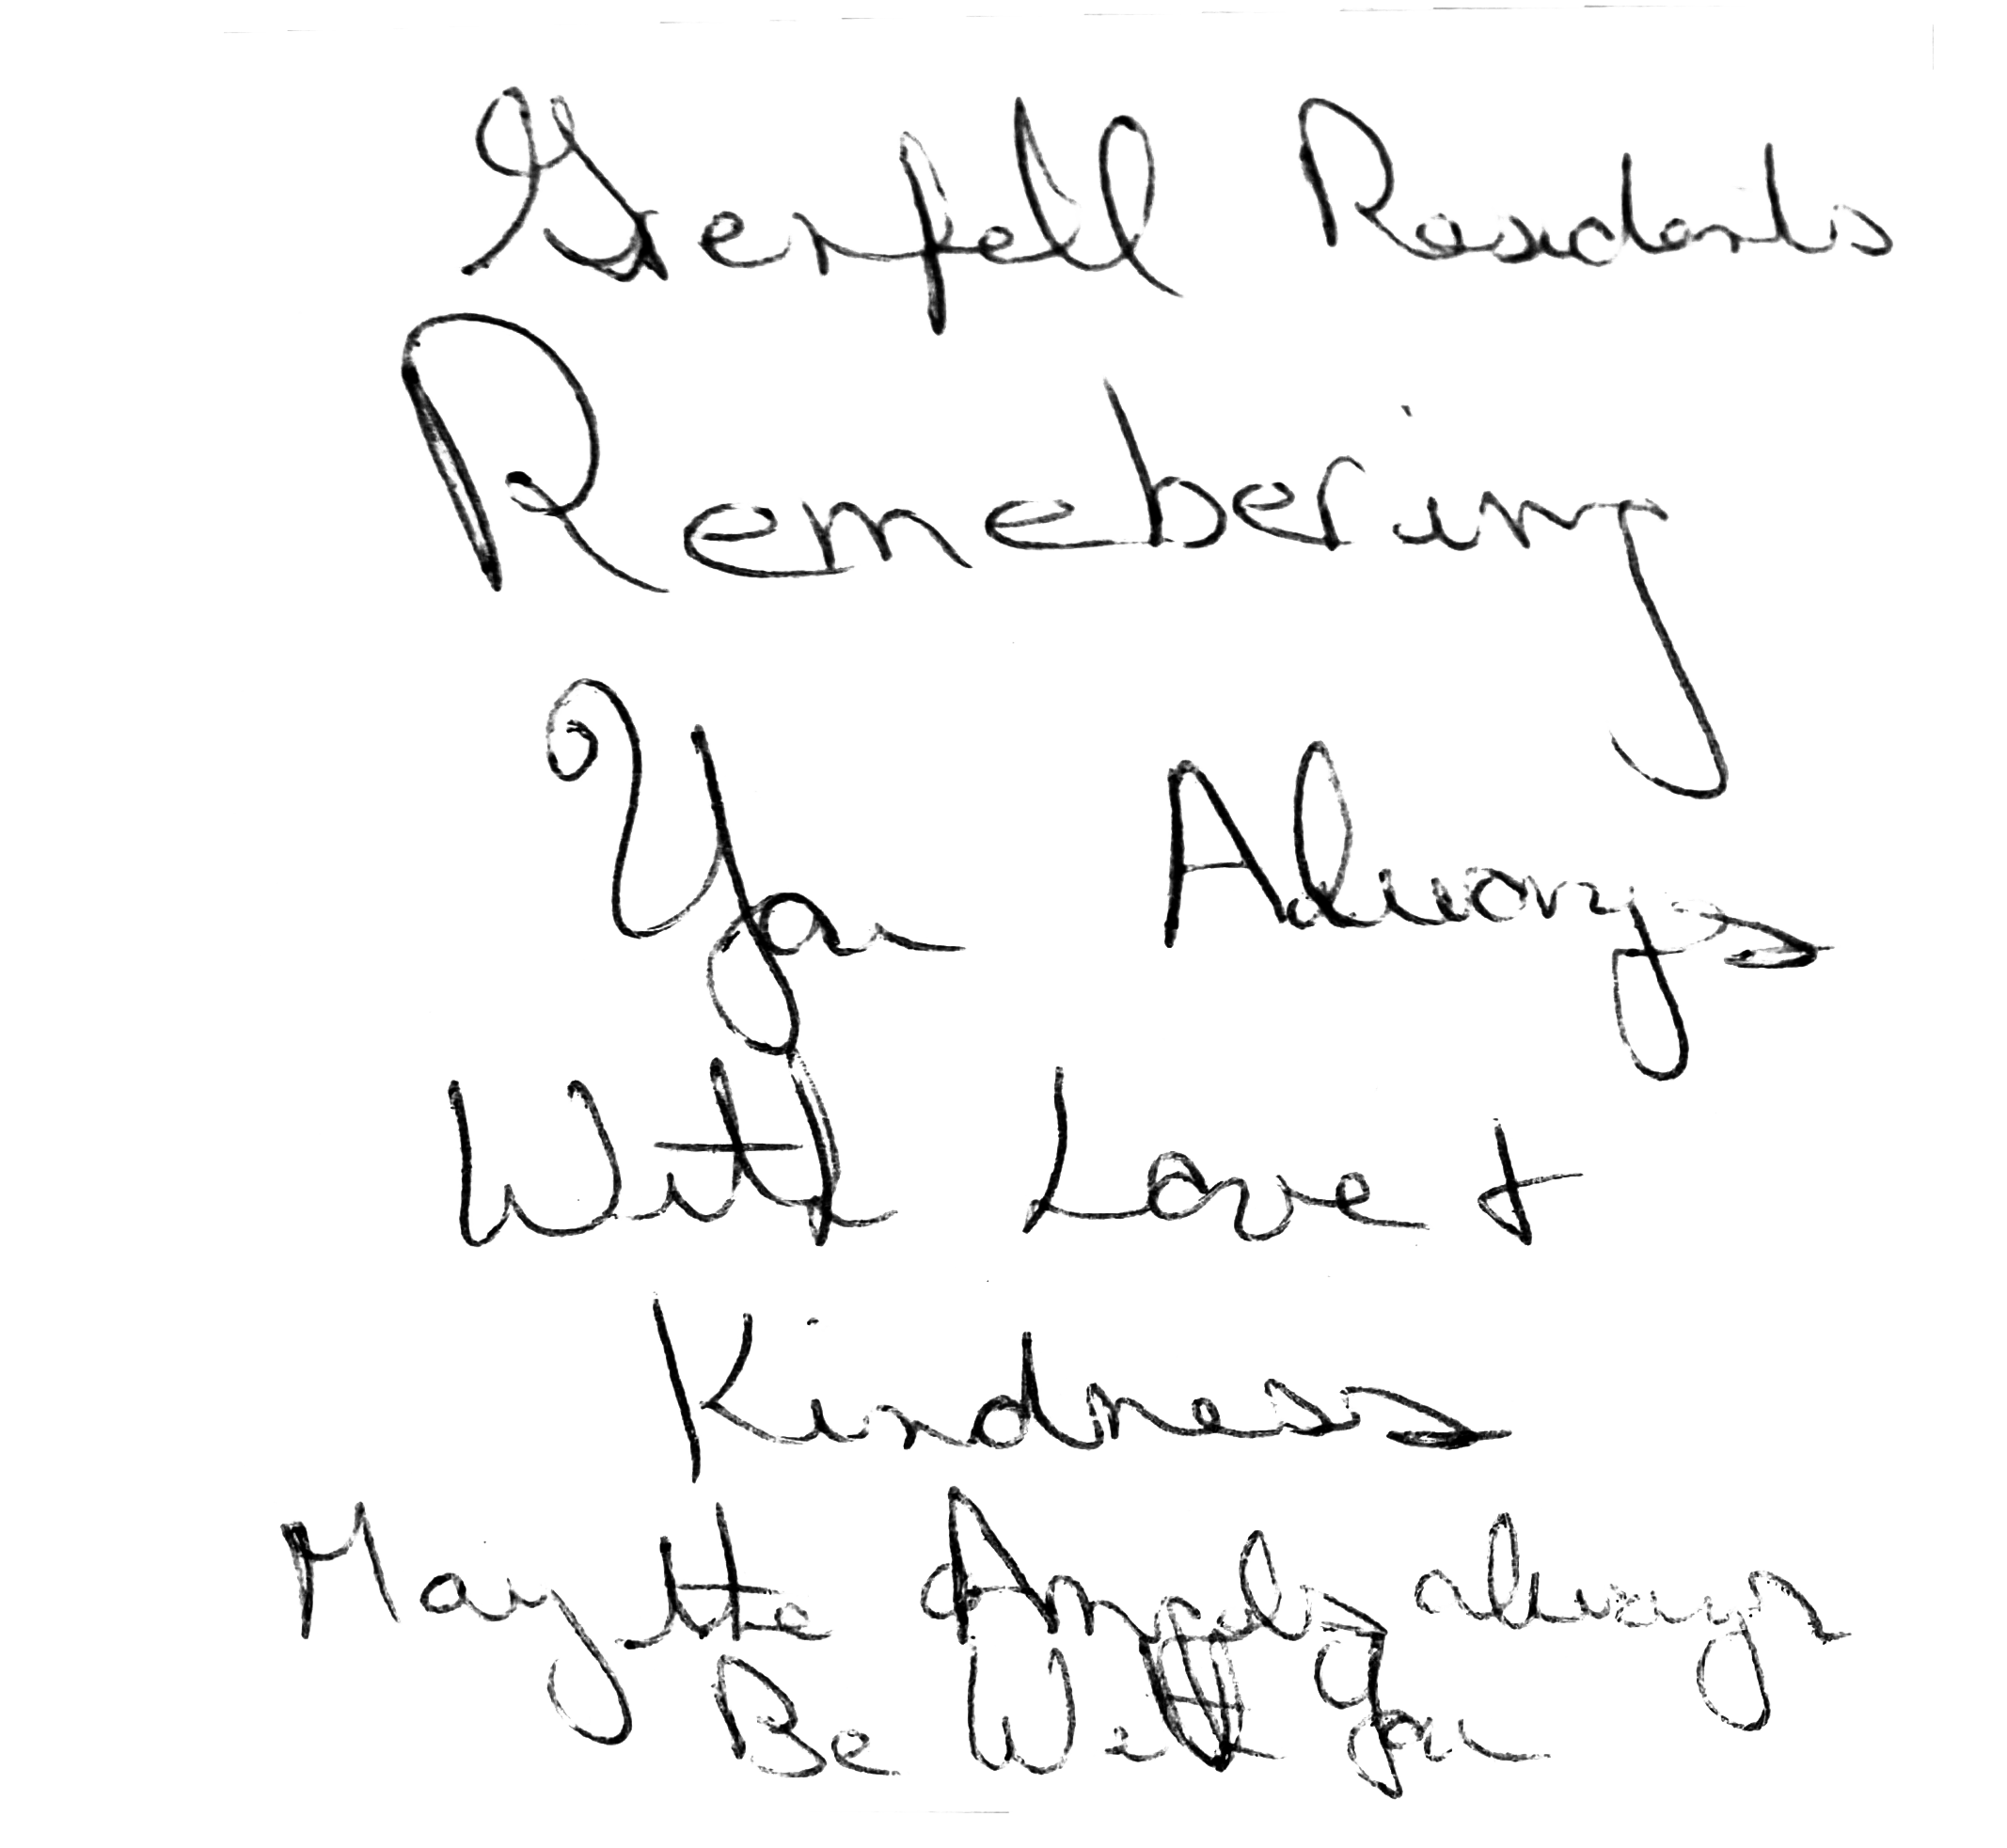 Grenfell Residents
Remebering
You Always
With Love +
Kindness
May the Angels always
Be With you